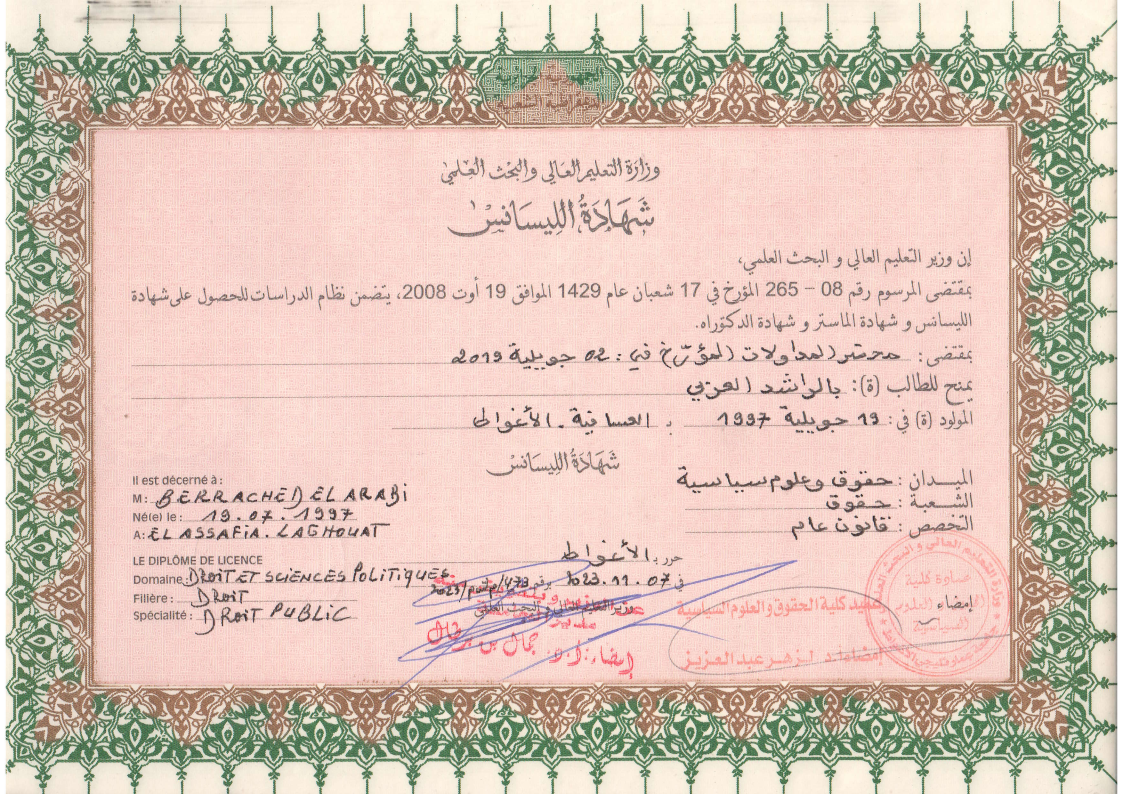 الجمهورية الجزائرية
الديمقراطية الشعبية
وزارة التعليم العالي والبحث العلمي
شهادة الليسانس
إن وزير التعليم العالي و البحث العلمي،
بمقتضى المرسوم رقم 08 – 265 المؤرخ في 17 شعبان عام 1429 الموافق 19 أوت 2008، يتضمن نظام الدراسات للحصول على شهادة
الليسانس و شهادة الماستر و شهادة الدكتوراه.
بمقتضى: محضر المداولات المؤرّخ في: 02 جويلية 2019
يمنح للطالب (ة): بالراشد العربي
المولود (ة) في: 19 جويلية 1997 بـ العسافية . الأغواط
شهادة الليسانس
الميدان : حقوق وعلوم سياسية
الشعبة : حقوق
التخصص : قانون عام
Il est décerné à :
M : BERRACHED EL ARABI
Né(e) le : 19.07.1997
A : EL ASSAFIA. LAGHOUAT
LE DIPLÔME DE LICENCE
Domaine : DROIT ET SCIENCES POLITIQUES
Filière : DROIT
Spécialité : DROIT PUBLIC
حرر بـ الأغواط
في 2023.11.07 برقم
وزير التعليم العالي و البحث العلمي
عميد كلية الحقوق والعلوم السياسية
إمضاء
إمضاء: أ.د. لزهر عبد العزيز
إمضاء: أ.د. جمال بن برطال